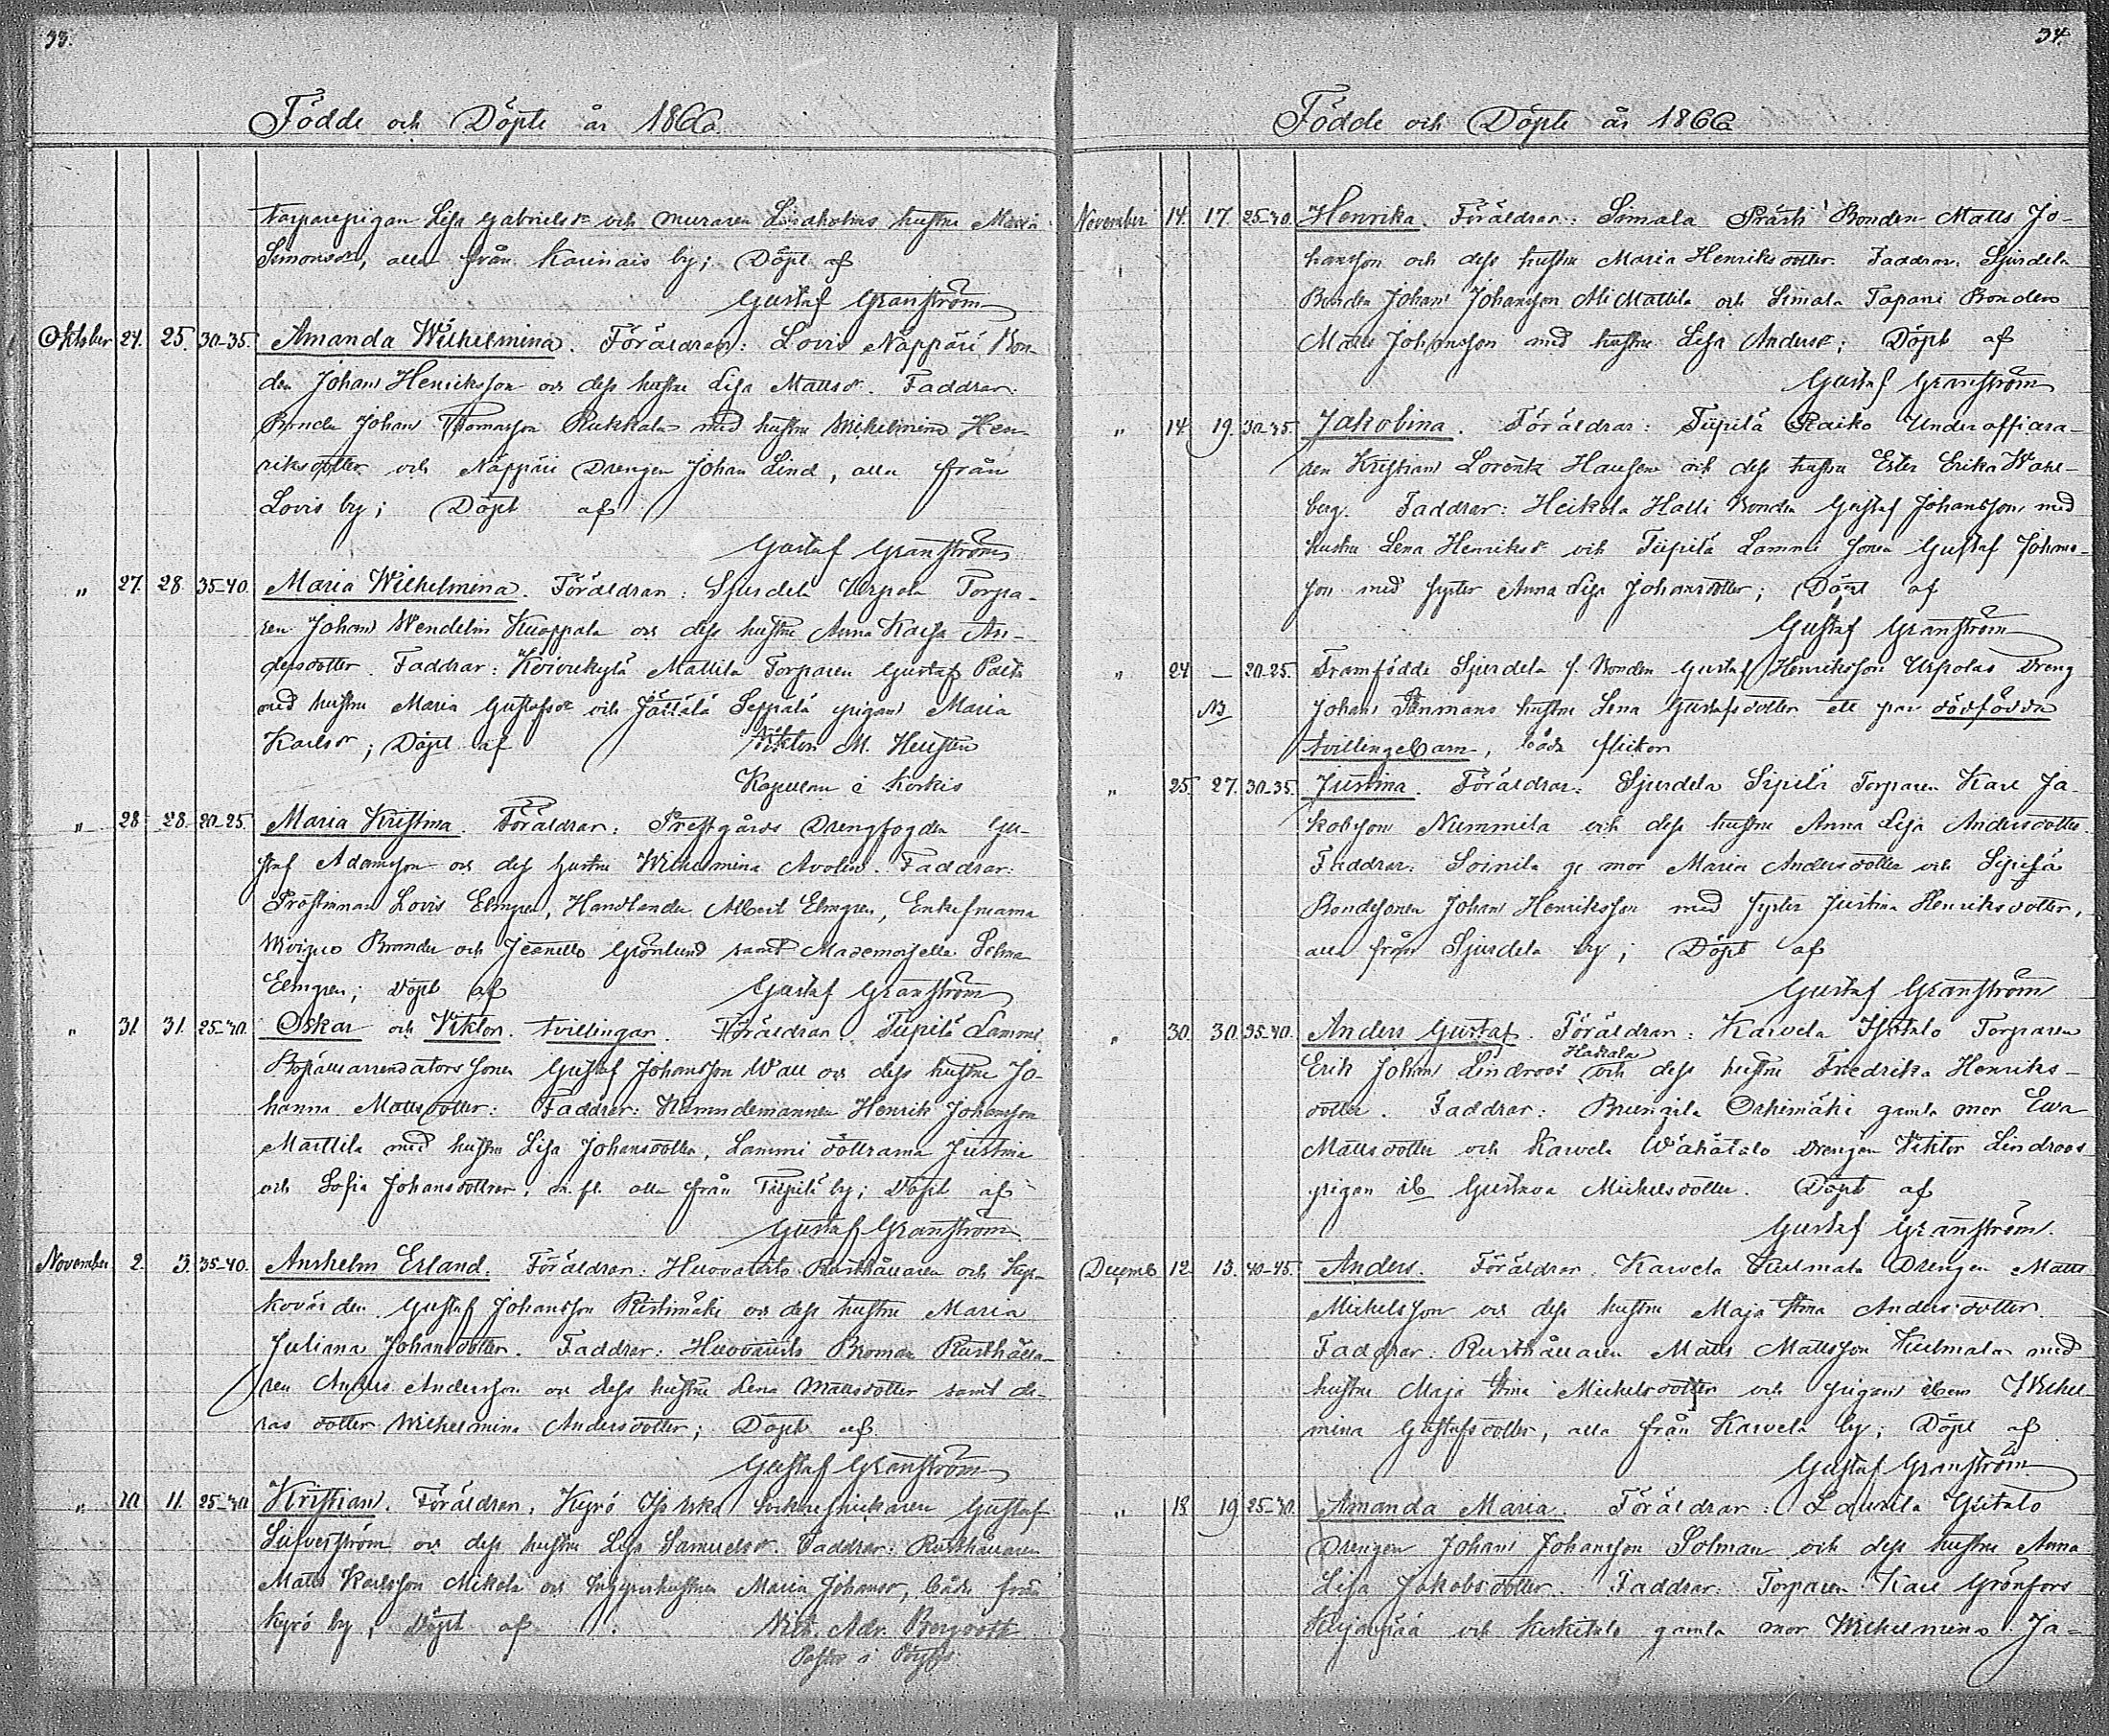 33.
Födde och Döpte år 1866
Torparepigan Lisa Gabrielsdr och muraren Lindholms hustru Maria
Simonsdr, alla från Karinais by; Döpt af
Gustaf Granström
Oktober 24. 25. 30-35. Amanda Wilhelmina. Föräldrar: Lovis Näppäri Bon-
den Johan Henriksson och dess hustru Lisa Mattsdr. Faddrar:
Bonden Johan Thomasson Rukkala med hustru Wilhelmina Hen-
riksdotter och Näppäri Drengen Johan Lind, alla från
Lovis by; Döpt af
Gustaf Granström
„ 27. 28. 35-40. Maria Wilhelmina. Föräldrar: Sjurdela Urpola Torpa-
ren Johan Wendelin Kuoppala och dess hustru Anna Kaisa An-
dersdotter. Faddrar: Koivukylä Mattila Torparen Gustaf
med hustru Maria Gustafsdr och Jättälä Seppälä pigan Maria
Karlsdr; Döpt af Viktor M.
Kapellan i Koskis
„ 28. 28. 20-25. Maria Kristina. Föräldrar: Prestgårds Drengfogden Gu-
staf Adamsson och dess hustru Wilhelmina Avolin. Faddrar:
Prostinnan Lovis Elmgren, Handlanden Albert Elmgren, Enkefruarna
Brander och Jeanette Grönlund samt Mademoiselle Selma
Elmgren; Döpt af Gustaf Granström
„ 31. 31. 25-30. Oskar och Viktor. tvillingar. Föräldrar: Tiipilä Lammi
arrendators sonen Gustaf Johansson Wall och dess hustru Jo-
hanna Mattsdotter: Faddrar: Nämndemannen Henrik Johansson
Marttila med hustru Lisa Johansdotter, Lammi döttrarna Justina
och Sofia Johansdöttrar, m. fl. alla från Tiipilä by; Döpt af
Gustaf Granström
November 2. 3. 35-40. Anshelm Erland. Föräldrar: Rusthållaren och Kyr-
kovärden Gustaf Johansson Ristimäki och dess hustru Maria
Juliana Johansdotter. Faddrar: Broman Rusthålla-
ren Anders Andersson och dess hustru Lena Mattsdotter samt de-
ras dotter Wilhelmina Andersdotter; Döpt af
Gustaf Granström
„ 10. 11. 25-30. Kristian. Föräldrar: Kyrö Sockneskräddaren Gustaf
Silfverström och dess hustru Lisa Samuelsdr. Faddrar: Rusthållaren
Matts Karlsson Mikola och Maria Johansdr, både från
Kyrö by; Döpt af Nick. Adr. Bergroth
Pastor i Pöytis
34.
Födde och Döpte år 1866
November 14. 17. 25-30. Henrika. Föräldrar: Simala Prästi Bonden Matts Jo-
hansson och dess hustru Maria Henriksdotter. Faddrar: Sjurdela
Bonden Johan Johansson Ali Mattila och Simala Tapani Bonden
Matts Johansson med hustru Lisa Andersdr; Döpt af
Gustaf Granström
„ 14. 19. 30-35. Jakobina. Föräldrar: Tiipilä Raiko Underofficera-
ren Kristian Lorentz Hausen och dess hustru Ester Erika Wahl-
berg. Faddrar: Heikola Halli Bonden Gustaf Johansson med
hustru Lena Henriksdr och Tiipilä Lammi sonen Gustaf Johans-
son med syster Anna Lisa Johansdotter; Döpt af
Gustaf Granström
„ 24 — 20-25. Framfödde Sjurdela f. Bonden Gustaf Henriksson Urpolas Dreng
NB Johan hustru Lena Gustafsdotter ett par dödfödda
tvillingebarn, båda flickor
„ 25. 27. 30-35. Justina. Föräldrar: Sjurdela Sipilä Torparen Karl Ja-
kobsson Nummila och dess hustru Anna Lisa Andersdotter.
Faddrar: Soinila g: mor Maria Andersdotter och Sipilä
Bondesonen Johan Henriksson med syster Justina Henriksdotter,
alla från Sjurdela by; Döpt af
Gustaf Granström
„ 30. 30. 35-40. Anders Gustaf. Föräldrar: Karvela Isotalo Torparen
Erik Johan Lindroos Hakala och dess hustru Fredrika Henriks-
dotter. Faddrar: Orhimäki gamla mor Eva
Mattsdotter och Karvela Wähätalo Drengen Viktor Lindroos
pigan ib Gustava Mickelsdotter. Döpt af
Gustaf Granström.
Decemb 12. 13. 40-45. Anders. Föräldrar: Karvela Kulmala Drengen Matts
Mickelsson och dess hustru Maja Stina Andersdotter.
Faddrar: Rusthållaren Matts Mattsson Kulmala med
hustru Maja Stina Mickelsdotter och pigan ibm Wilhel-
mina Gustafsdotter, alla från Karvela by; Döpt af
Gustaf Granström
„ 18. 19 25-30. Amanda Maria. Föräldrar: Laurila Yitalo
Drengen Johan Johansson Solman och dess hustru Anna
Lisa Jakobsdotter. Faddrar: Torparen Karl Grönfors
och Keskitalo gamla mor Wilhelmina Ja-